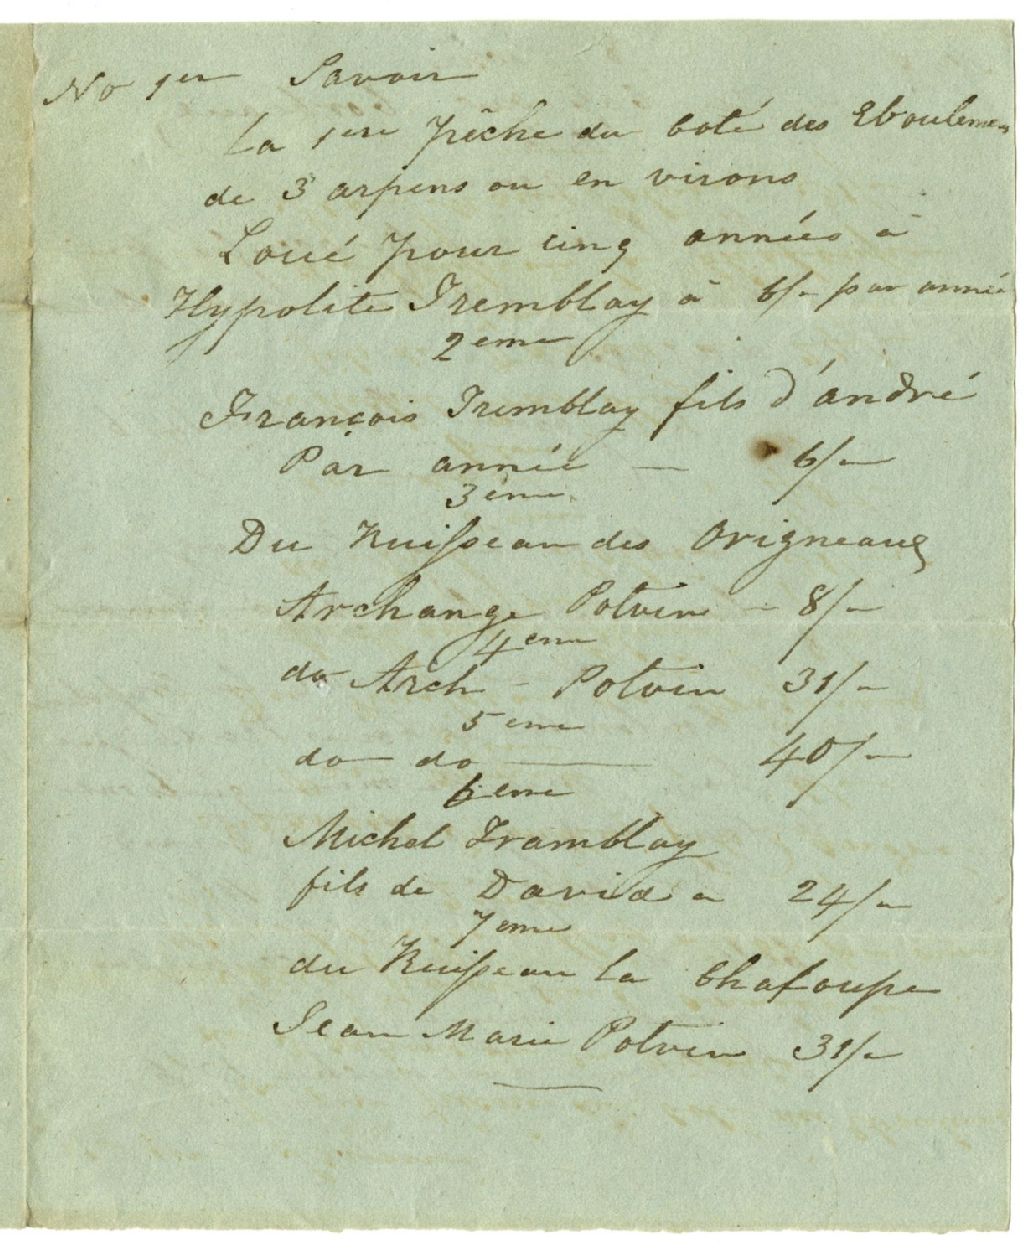 No 1er Savoir
La 1ere pêche du coté des Eboulemens
de 3 arpens ou en virons
Loué pour cinq années à
Hypolite Tremblay à 6/- par année
2eme
François Tremblay fils d'andré
Par année — 6/-
3eme
Du Ruisseau des Origneaux
Archange Potvin - 8/-
4eme
do Arch - Potvin 31/-
5eme
do do — 40/-
6eme
Michel Tramblay
fils de David a 24/-
7eme
du Ruisseau la Chaloupe
Jean Marie Potvin 31/-